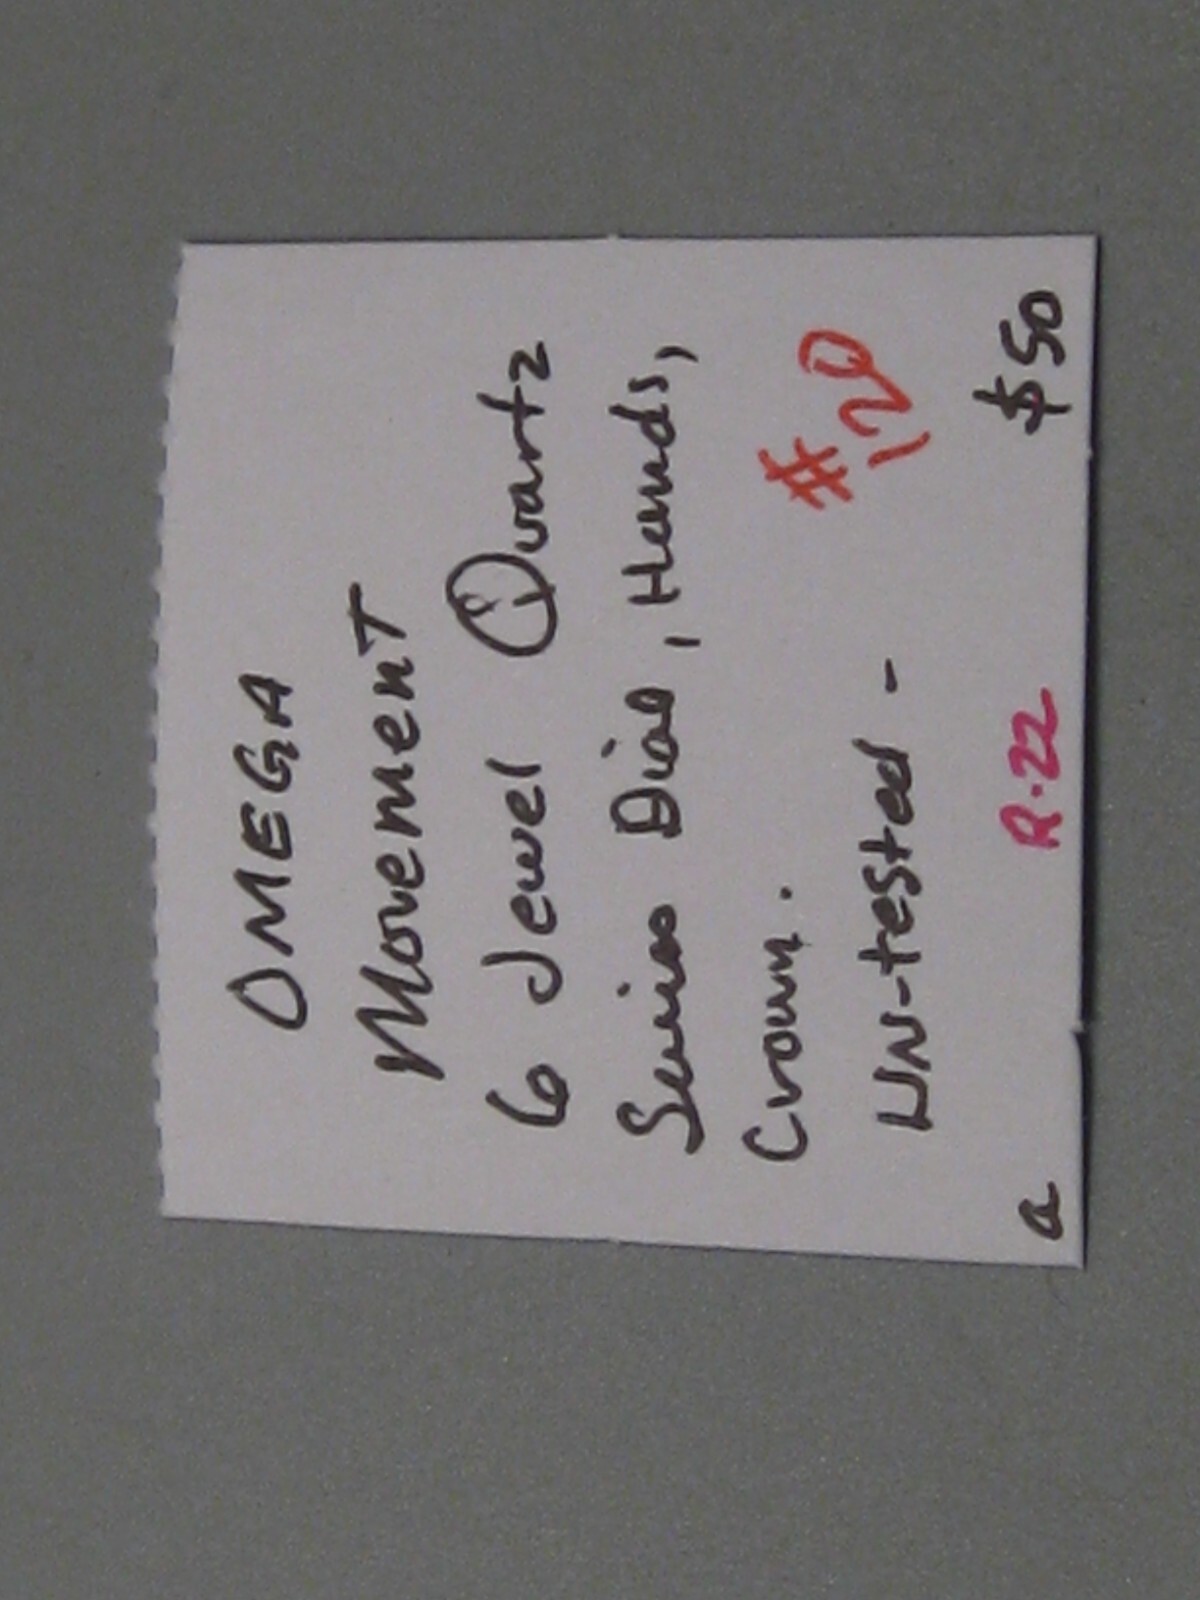 OMEGA
MovemenT
6 Jewel Quartz
Swiss Dial, Hands,
Crown.
#120
UN-tested -
a R-22 $50